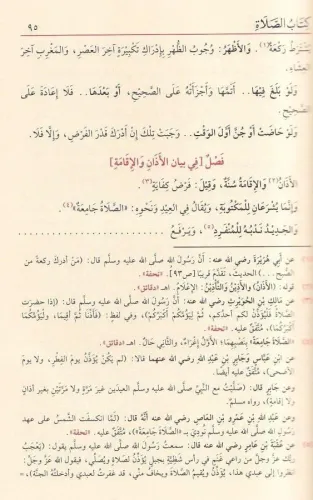 كتاب الصلاة ٩٥
يشترط ركعة(١). وَالْأَظْهَرُ: وُجُوبُ الظُّهْرِ بِإِدْرَاكِ تَكْبِيرَةٍ آخِرَ الْعَصْرِ، وَالْمَغْرِبِ آخِرَ
العِشَاءِ.
وَلَوْ بَلَغَ فِيهَا.. أَتَمَّهَا وَأَجْزَأَتْهُ عَلَى الصَّحِيحِ، أَوْ بَعْدَهَا.. فَلَا إِعَادَةَ عَلَى
الصَّحِيحِ.
وَلَوْ حَاضَتْ أَوْ جُنَّ أَوَّلَ الْوَقْتِ.. وَجَبَتْ تِلْكَ إِنْ أَدْرَكَ قَدْرَ الْفَرْضِ، وَإِلَّا فَلَا.
فَصْلٌ [فِي بيان الْأَذَانِ وَالْإِقَامَةِ]
الْأَذَانُ(٢) وَالْإِقَامَةُ سُنَّةٌ، وَقِيلَ: فَرْضُ كِفَايَةٍ(٣).
وَإِنَّمَا يُشْرَعَانِ لِلْمَكْتُوبَةِ، وَيُقَالُ فِي الْعِيدِ وَنَحْوِهِ: «الصَّلَاةُ جَامِعَةٌ»(٤).
وَالْجَدِيدُ نَدْبُهُ لِلْمُنْفَرِدِ(٥)، وَيَرْفَعُ
عن أبي هُرَيْرَةَ رضي الله عنه: أَنَّ رَسُولَ اللهِ صلَّى الله عليه وسلَّم قَالَ: (مَنْ أَدْرَكَ ركعةً من
الصُّبح ...) الحديث، تقدَّم قريبًا [ص٩٣]. اهـ «تحفة».
قوله: (الأَذَانُ) وَالْأَذِينُ وَالتَّأْذِينُ: الإعلامُ. اهـ «دقائق».
عن مَالِكِ بْنِ الْحُوَيْرِثِ رضي الله عنه: أَنَّ رسولَ الله صلى الله عليه وسلم قال: (إذا حضرَتِ
الصَّلَاةُ فَلْيُؤَذِّنْ لكم أحدُكم، ثُمَّ لِيَؤُمَّكُمْ أَكْبَرُكُمْ)، وفي لفظٍ: (فَأَذِّنَا ثُمَّ أَقِيمَا، وَلْيَؤُمَّكُمَا
أَكْبَرُكُمَا)، مُتَّفَقٌ عليه. اهـ «تحفة».
(الصَّلَاةَ جَامِعَةً) بنصبهما؛ الأوَّلُ إغراءٌ، والثَّاني حالٌ. اهـ «دقائق».
عن ابْنِ عَبَّاسٍ وَجَابِرِ بْنِ عَبْدِ اللهِ رضي الله عنهما قالا: (لم يَكُنْ يُؤَذَّنُ يومَ الفِطْرِ، ولا يومَ
الأضحى)، مُتَّفَقٌ عليه أيضًا.
وعن جَابِرٍ قال: (صَلَّيْتُ مع النَّبِيِّ صلَّى الله عليه وسلَّم العيدين غيرَ مَرَّةٍ ولا مَرَّتَيْنِ بغير أذانٍ
ولا إقامةٍ)، رواه مسلم.
وعن عَبْدِ اللهِ بْنِ عَمْرِو بْنِ الْعَاصِ رضي الله عنه أَنَّهُ قَالَ: (لَمَّا انكسفَتِ الشَّمسُ على عهدِ
رسولِ الله صلى الله عليه وسلم نُودِيَ بـ«الصَّلَاةَ جَامِعَةً»)، مُتَّفَقٌ عليه. اهـ «تحفة».
عن عُقْبَةَ بْنِ عَامِرٍ رضي الله عنه قال: سمعتُ رسولَ الله صلَّى الله عليه وسلَّم يقول: (يَعْجَبُ
ربُّك عزَّ وجلَّ من راعي غنمٍ في رأس شَظِيَّةٍ بجبلٍ يُؤَذِّنُ لصلاةٍ ويُصَلِّي، فيقول الله عزَّ وجلَّ:
انظروا إلى عبدي هذا، يُؤَذِّنُ ويُقيم الصَّلاةَ ويخافُ منِّي، قد غفرتُ لعبدي وأدخلتُهُ الجنَّةَ)، =